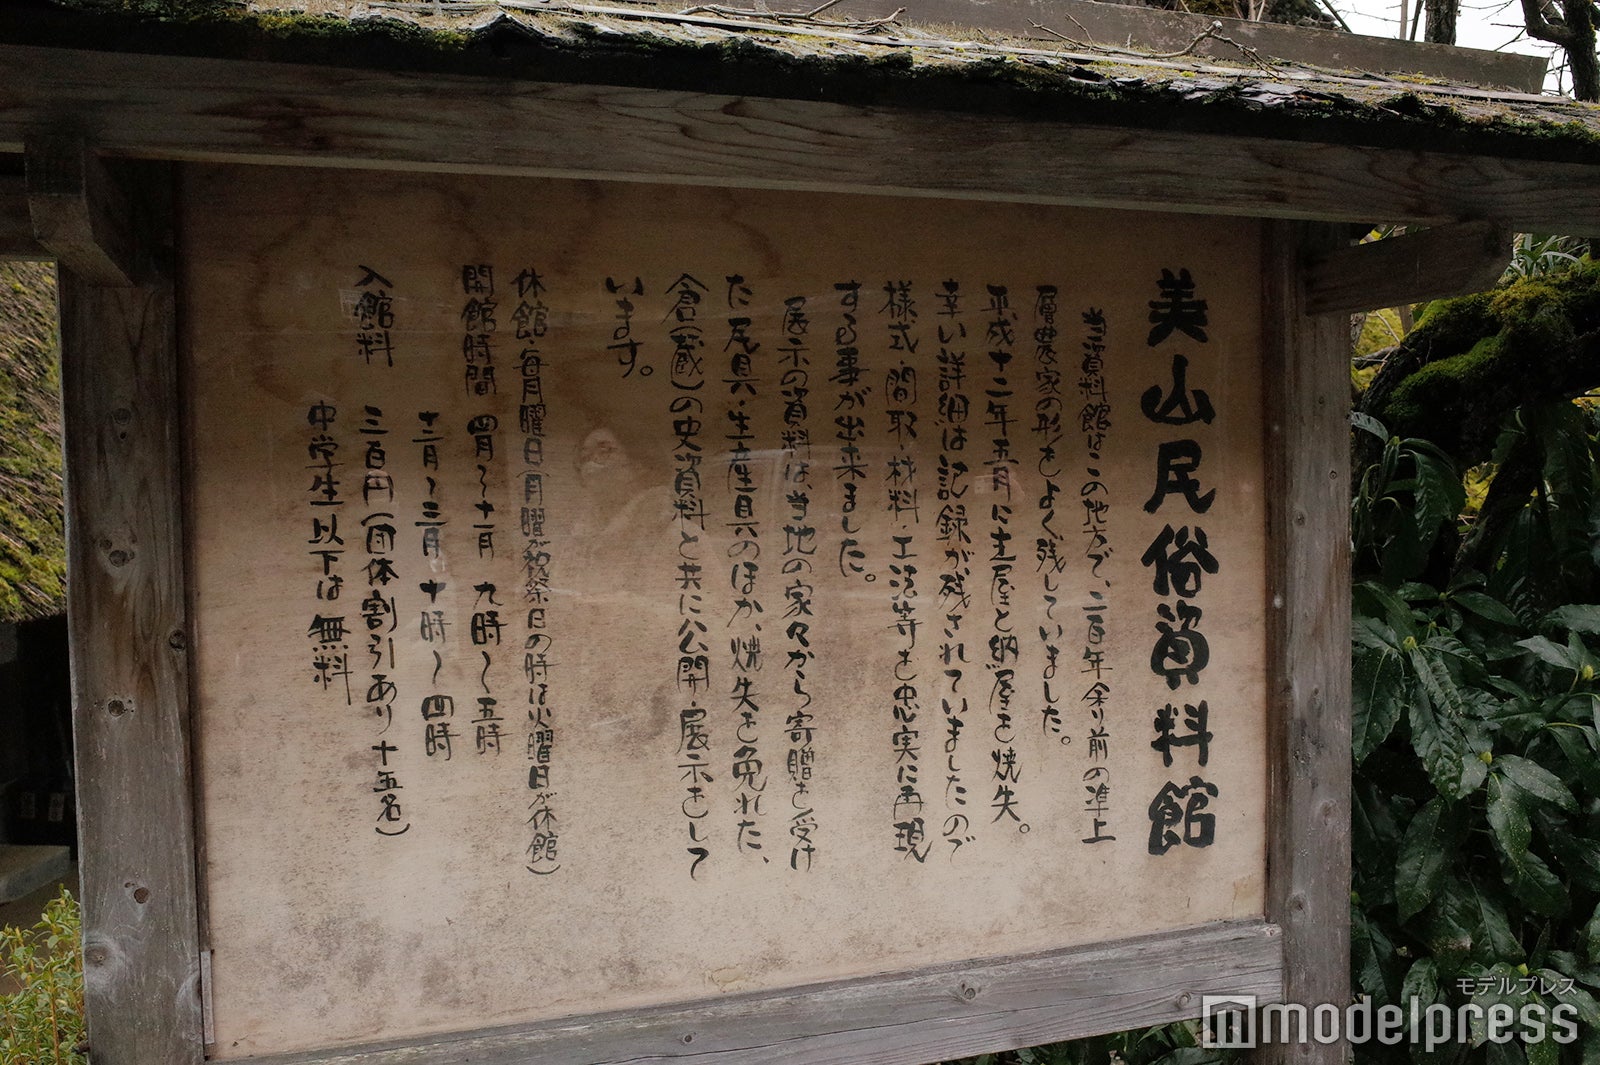 美山民俗資料館
当資料館はこの地方で、二百年余り前の準上
層農家の形をよく残していました。
平成十二年五月に主屋と納屋を焼失。
幸い詳細は記録が残されていましたので
様式・間取・材料・工法等を忠実に再現
する事が出来ました。
展示の資料は、当地の家々から寄贈を受け
た民具・生産具のほか、焼失を免れた、
倉(蔵)の史資料と共に公開・展示をして
います。
休館 毎月曜日(月曜が祝祭日の時は火曜日が休館)
開館時間 四月〜十一月 九時〜五時
十二月〜三月 十時〜四時
入館料 三百円(団体割引あり十五名)
中学生以下は無料
モデルプレス
modelpress